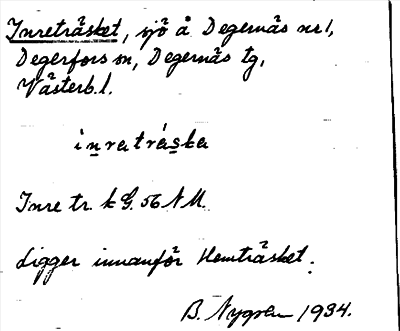 Inreträsket, sjö å Degernäs nr 1,
Degerfors sn, Degernäs tg,
Västerb. l.
inratráska
Inre tr. k G. 56 NM.
Ligger innanför Hemträsket.
B. Nygren 1934.